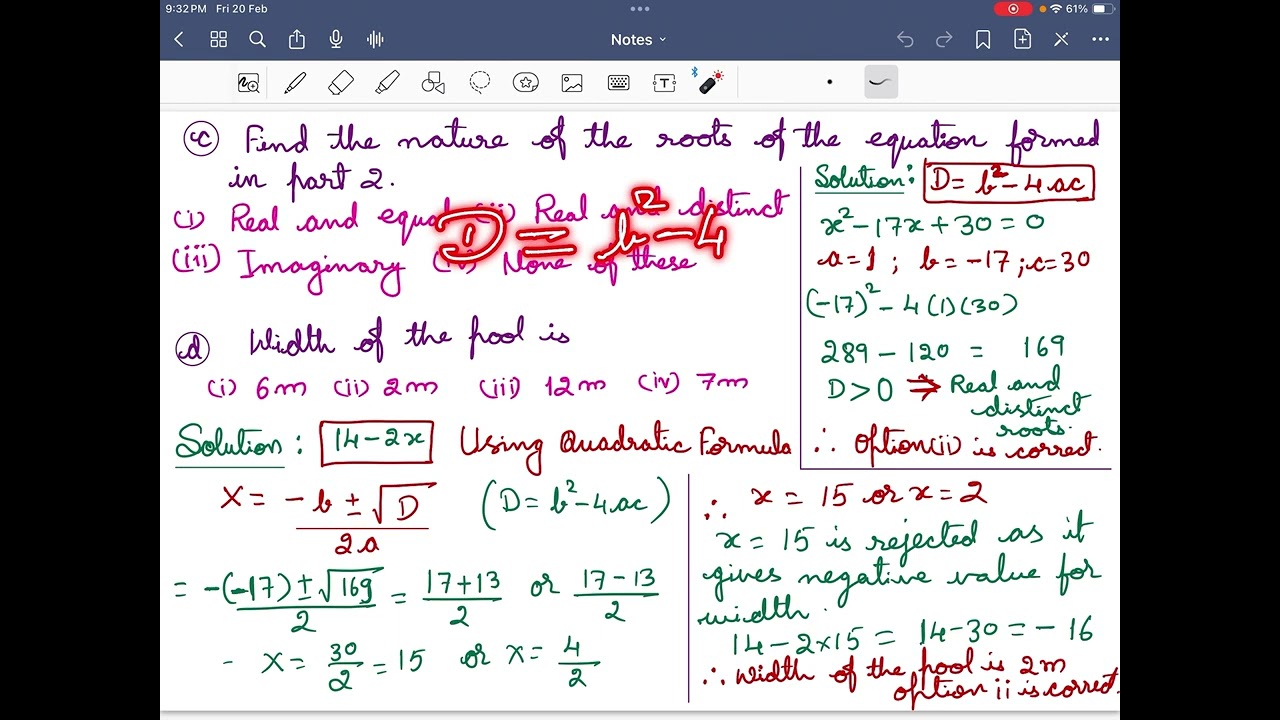 9:32 PM Fri 20 Feb
61%
Notes
(c) Find the nature of the roots of the equation formed
in part 2.
(i) Real and equal (ii) Real and distinct
(iii) Imaginary (iv) None of these
D = b² - 4
(d) Width of the pool is
(i) 6m (ii) 2m (iii) 12m (iv) 7m
Solution: D = b² - 4ac
x² - 17x + 30 = 0
a = 1 ; b = -17 ; c = 30
(-17)² - 4(1)(30)
289 - 120 = 169
D > 0 ⇒ Real and
distinct
roots.
∴ Option(ii) is correct.
Solution: 14 - 2x Using Quadratic Formula
X = -b ± √D / 2a (D = b² - 4ac)
= -(-17) ± √169 / 2 = 17+13 / 2 or 17-13 / 2
- X = 30/2 = 15 or X = 4/2
∴ x = 15 or x = 2
x = 15 is rejected as it
gives negative value for
width.
14 - 2×15 = 14 - 30 = -16
∴ Width of the pool is 2m
option ii is correct.